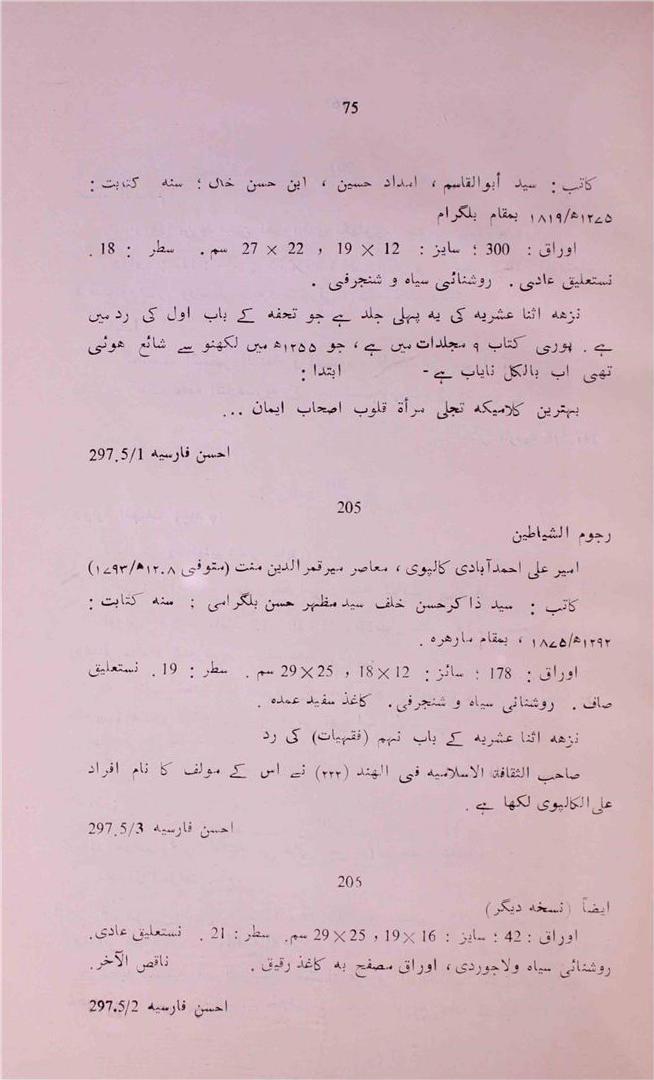 75
کاتب : سید أبوالقاسم ، امداد حسین ، ابن حسن خاں ؛ سنه کتابت :
۱۲۷۵ھ/۱۸۱۹ بمقام بلگرام
اوراق : 300 ؛ سایز : 12 × 19 ، 22 × 27 سم . سطر : 18 .
نستعلیق عادی . روشنائی سیاه و شنجرفی .
نزهه اثنا عشریه کی یه پہلی جلد ہے جو تحفه کے باب اول کی رد میں
ہے . پوری کتاب ۹ مجلدات میں ہے ، جو ۱۲۵۵ھ میں لکھنو سے شائع ہوئی
تھی اب بالکل نایاب ہے - ابتدا :
بہترین کلامیکه تجلی مرأة قلوب اصحاب ایمان ...
احسن فارسیه 297.5/1
205
رجوم الشیاطین
امیر علی احمدآبادی کالپوی ، معاصر میرقمرالدین منت (متوفی ۱۲۰۸ھ/۱۷۹۳)
کاتب : سید ذاکرحسن خلف سیدمظہر حسن بلگرامی ؛ سنه کتابت :
۱۲۹۲ھ/۱۸۷۵ ، بمقام مارهره .
اوراق : 178 ؛ سائز : 12×18 ، 25×29 سم . سطر : 19 . نستعلیق
صاف . روشنائی سیاه و شنجرفی . کاغذ سفید عمده .
نزهه اثنا عشریه کے باب نہم (فقہیات) کی رد
صاحب الثقافة الاسلامیه فی الهند (۲۲۲) نے اس کے مولف کا نام افراد
علی الکالپوی لکھا ہے .
احسن فارسیه 297.5/3
205
ایضاً (نسخه دیگر)
اوراق : 42 ؛ سایز : 16×19 ، 25×29 سم . سطر : 21 . نستعلیق عادی .
روشنائی سیاه ولاجوردی ، اوراق مصفح به کاغذ رقیق . ناقص الآخر .
احسن فارسیه 297.5/2